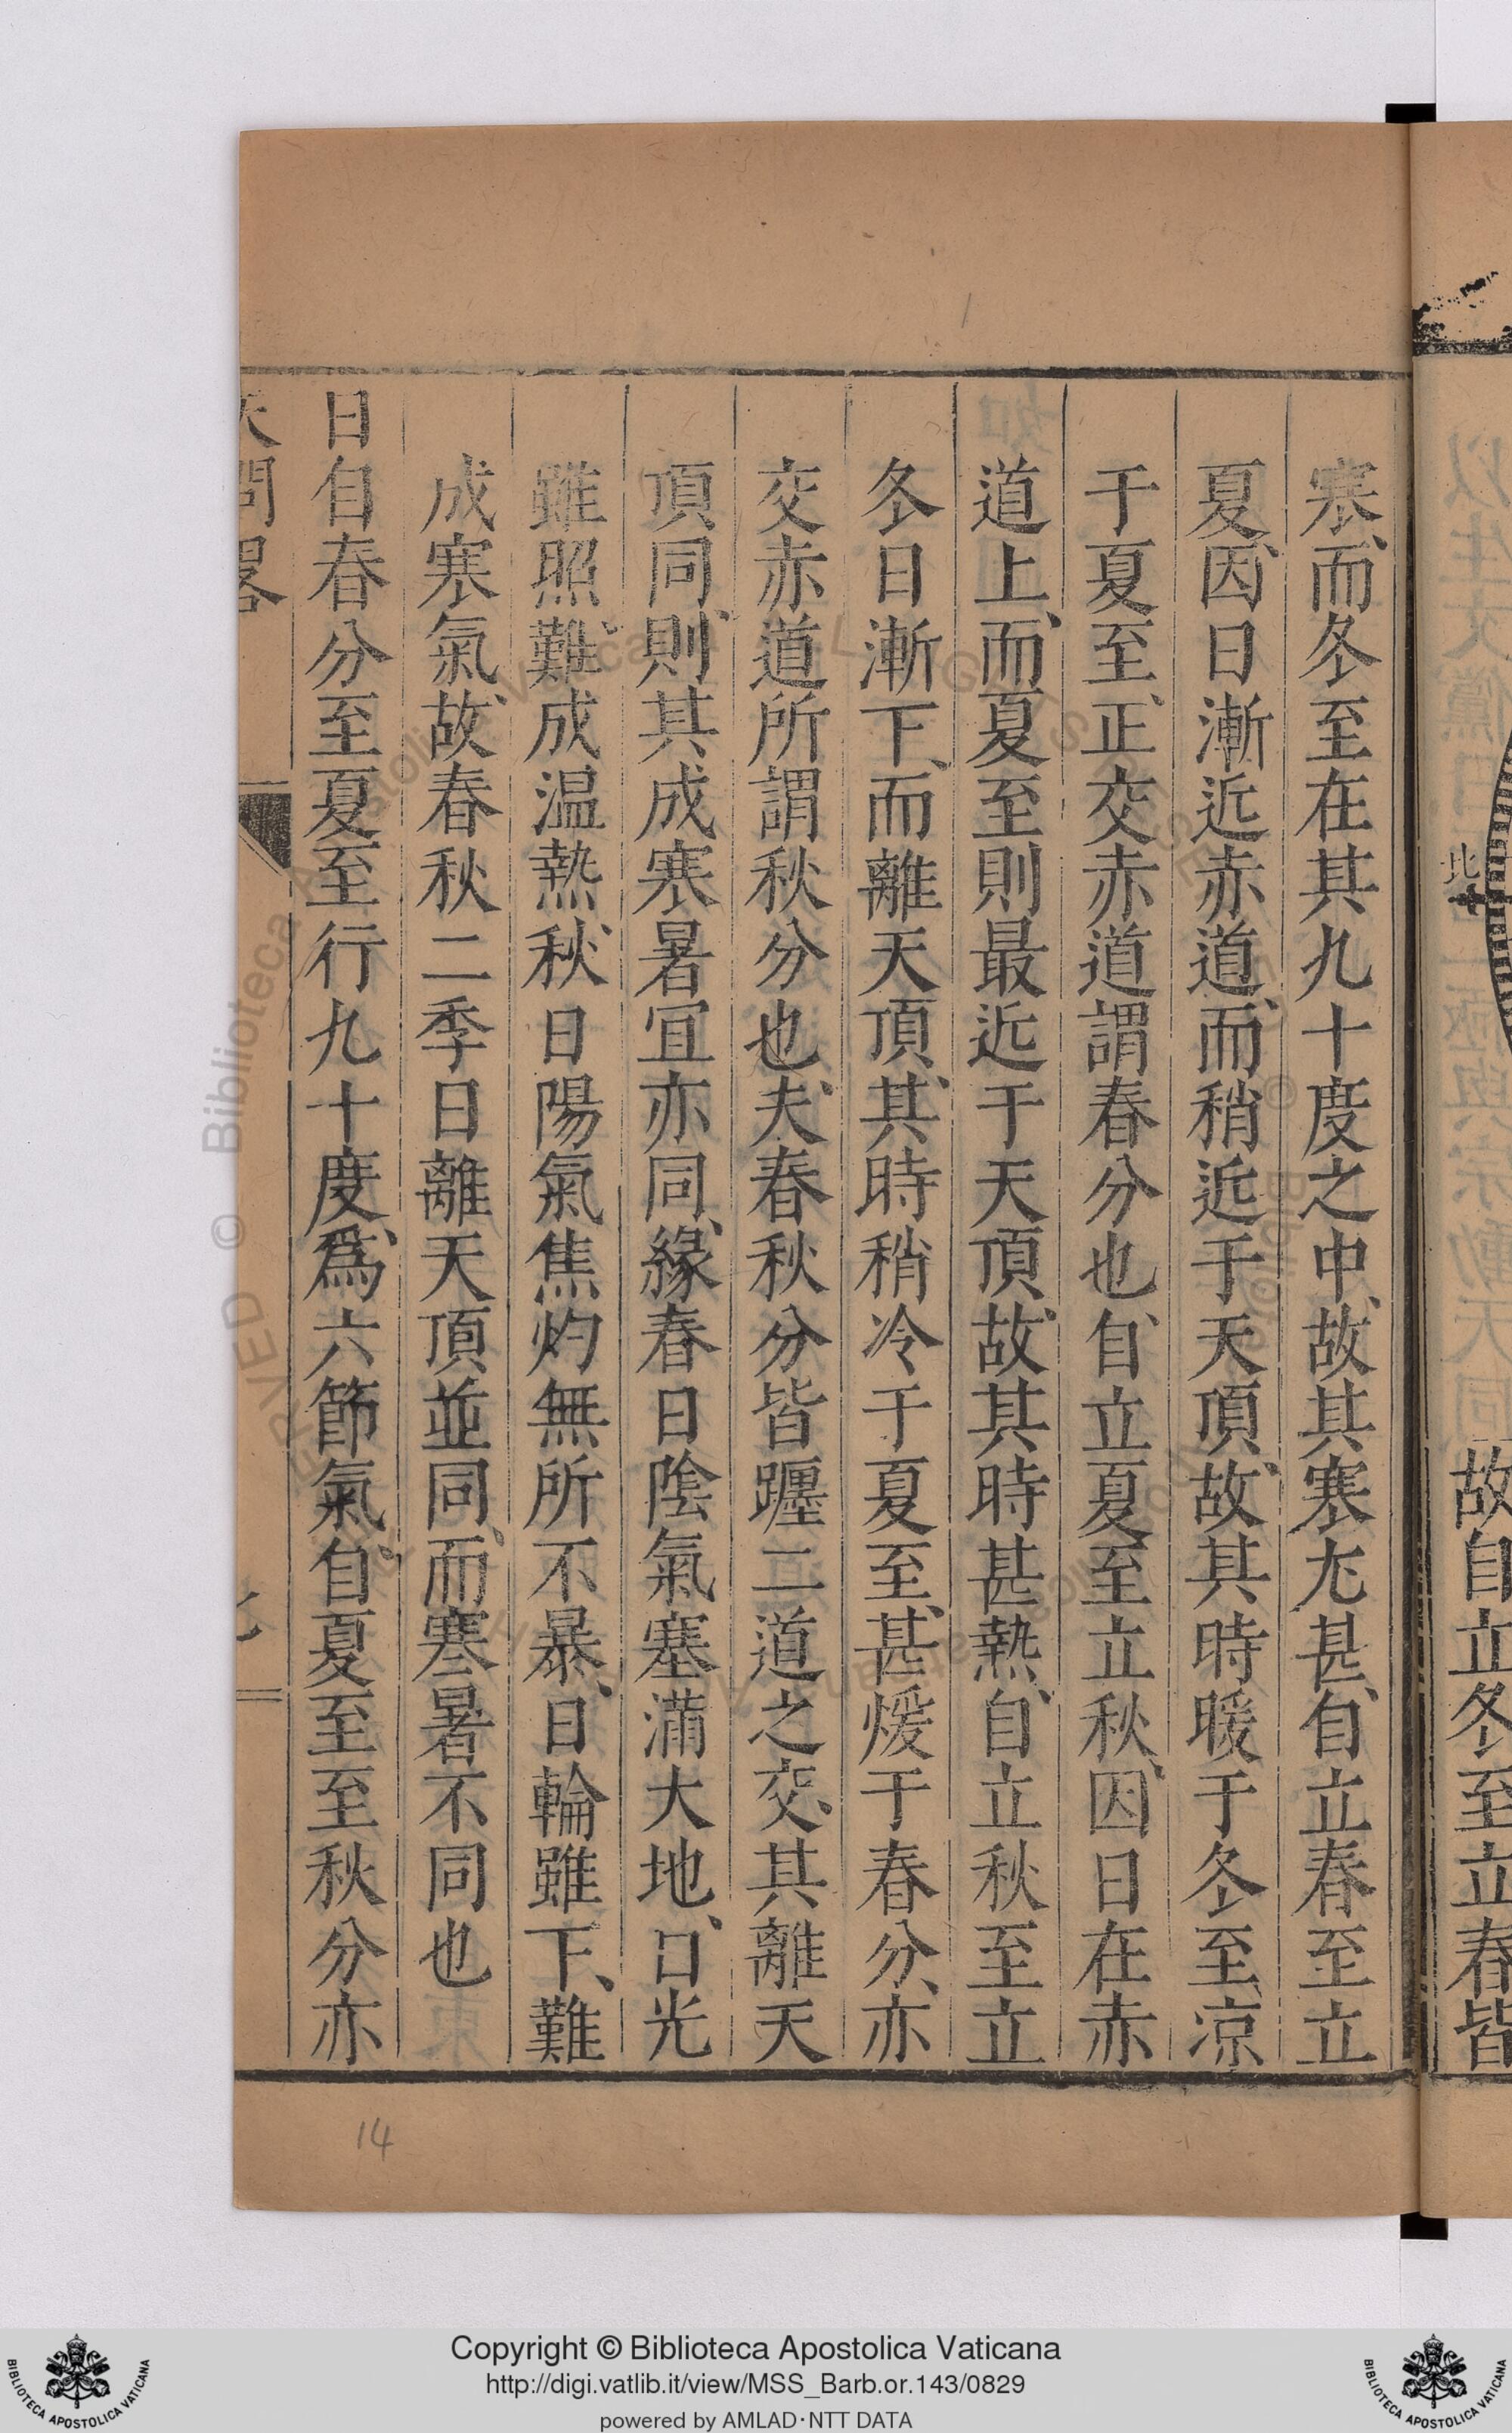 北
故自立冬至立春皆
寒、而冬至在其九十度之中、故其寒尤甚、自立春至立
夏、因日漸近赤道、而稍近于天頂、故其時暖于冬至、凉
于夏至、正交赤道謂春分也、自立夏至立秋、因日在赤
道上、而夏至則最近于天頂、故其時甚熱、自立秋至立
冬日漸下、而離天頂、其時稍冷于夏至、甚煖于春分、亦
交赤道所謂秋分也、夫春秋分皆躔二道之交、其離天
頂同、則其成寒暑宜亦同、緣春日陰氣塞滿大地、口光
雖照、難成温熱、秋日陽氣焦灼無所不暴、日輪雖下、難
成寒氣、故春秋二季日離天頂並同、而寒暑不同也
日自春分至夏至行九十度、爲六節氣、自夏至至秋分亦
天問畧
14
Copyright © Biblioteca Apostolica Vaticana
http://digi.vatlib.it/view/MSS_Barb.or.143/0829
powered by AMLAD·NTT DATA
BIBLIOTECA APOSTOLICA VATICANA
BIBLIOTECA APOSTOLICA VATICANA